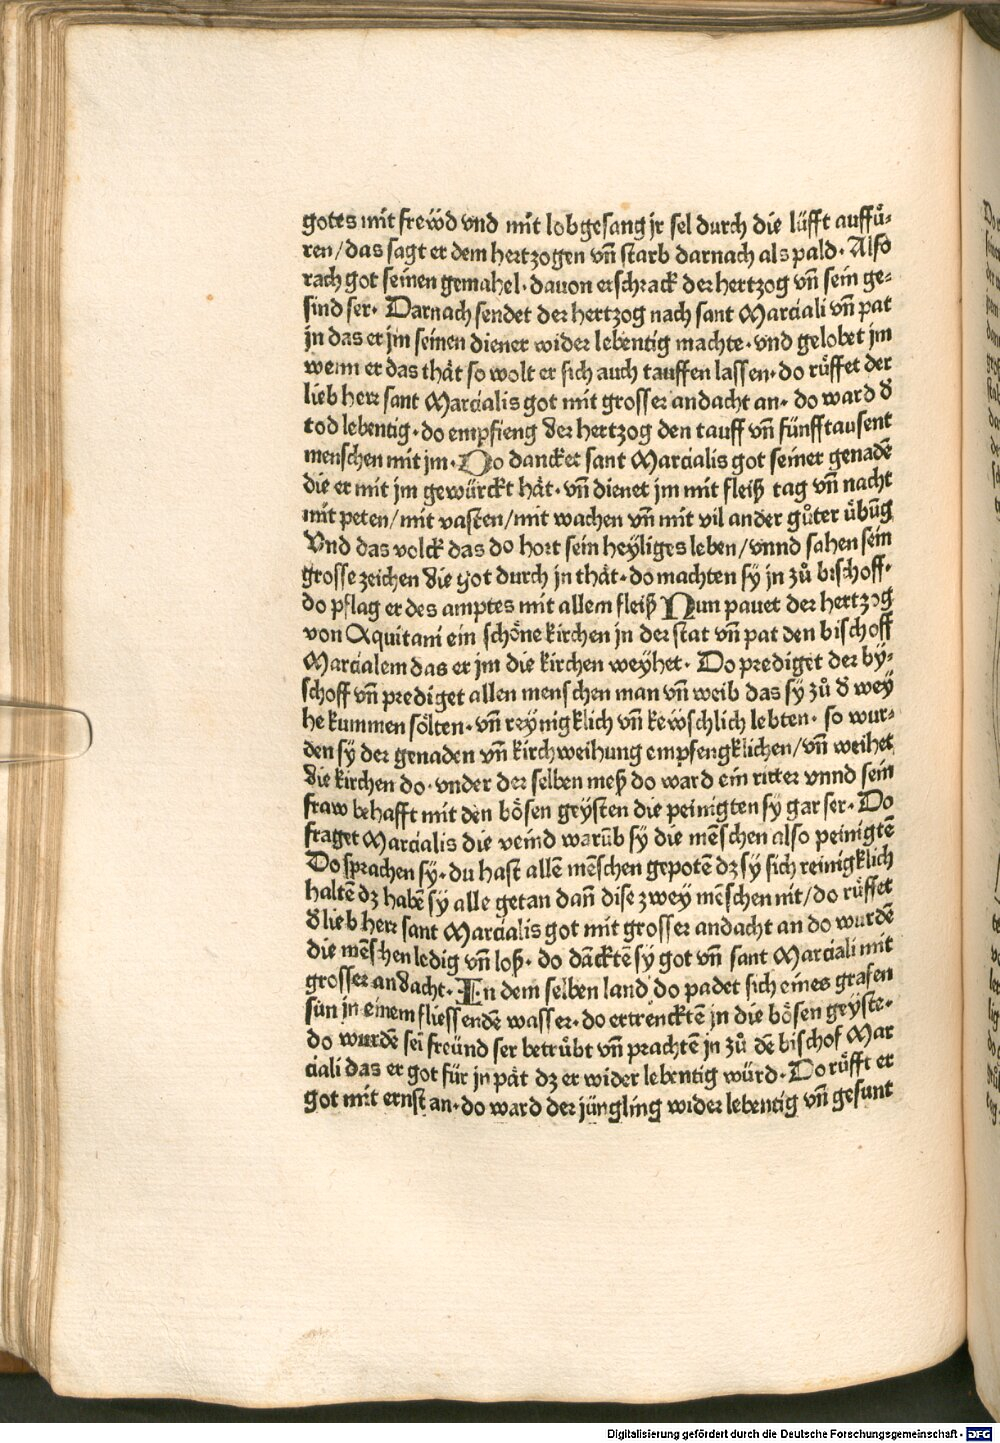 gotes mit freẅd vnd mit lobgesang jr sel durch die lüfft auffuͦ⸗
ren/das sagt er dem hertzogen vn̄ starb darnach als pald· Also
rach got seinen gemahel· dauon erschrack der hertzog vn̄ sein ge⸗
sind ser· Darnach sendet der hertzog nach sant Marciali vn̄ pat
jn das er jm seinen diener wider lebentig machte· vnd gelobet jm
wenn er das thaͤt so wolt er sich auch tauffen lassen· do ruͤffet der
lieb herr sant Marcialis got mit grosser andacht an· do ward d̕
tod lebentig· do empfieng der hertzog den tauff vn̄ fünfftausent
menschen mit jm· Do dancket sant Marcialis got seiner genadē
die er mit jm gewürckt haͤt· vn̄ dienet jm mit fleiß tag vn̄ nacht
mit peten/mit vasten/mit wachen vn̄ mit vil ander guͦter uͤbūg
Vnd das volck das do hort sein heyliges leben/vnnd sahen sein
grosse zeichen die got durch jn thaͤt· do machten sy jn zuͦ bischoff·
do pflag er des amptes mit allem fleiß Nun pauet der hertzog
von Aquitani ein schoͤne kirchen jn der stat vn̄ pat den bischoff
Marcialem das er jm die kirchen weyhet· Do prediget der by⸗
schoff vn̄ prediget allen menschen man vn̄ weib das sy zuͦ d̕ wey
he kummen soͤlten· vn̄ reynigklich vn̄ keẅschlich lebten· so wur⸗
den sy der genaden vn̄ kirchweihung empfengklichen/vn̄ weihet
die kirchen do· vnder der selben meß do ward ein ritter vnnd sein
fraw behafft mit den boͤsen geysten die peinigten sy gar ser· Do
fraget Marcialis die veind warūb sy die mēschen also peinigtē
Do sprachen sy· du hast allē mēschen gepotē dz sy sich reinigklich
haltē dz habē sy alle getan dan̄ dise zwey mēschen nit/do ruͤffet
d̕ lieb herr sant Marcialis got mit grosser andacht an do wurdē
die mēschen ledig vn̄ loß· do dācktē sy got vn̄ sant Marciali mit
grosser andacht· In dem selben land do padet sich eines grafen
sun jn einem fliessendē wasser· do ertrencktē jn die boͤsen geyste·
do wurdē sei freünd ser betruͤbt vn̄ prachtē jn zuͦ dē bischof Mar
ciali das er got für jn paͤt dz er wider lebentig würd· Do ruͤfft er
got mit ernst an· do ward der jüngling wider lebentig vn̄ gesunt
Digitalisierung gefördert durch die Deutsche Forschungsgemeinschaft - DFG